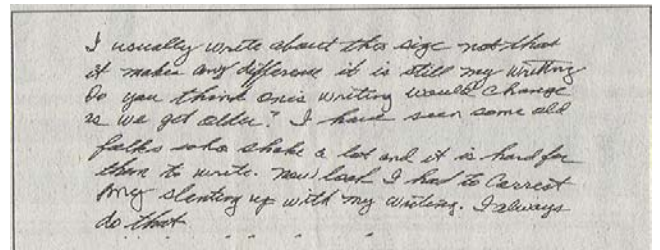 I usually write about this size not that
it makes any difference it is still my writing
Do you think one's writing would change
as we get older? I have seen some old
folks who shake a lot and it is hard for
them to write. Now look I had to correct
my slenting up with my writing. I always
do that